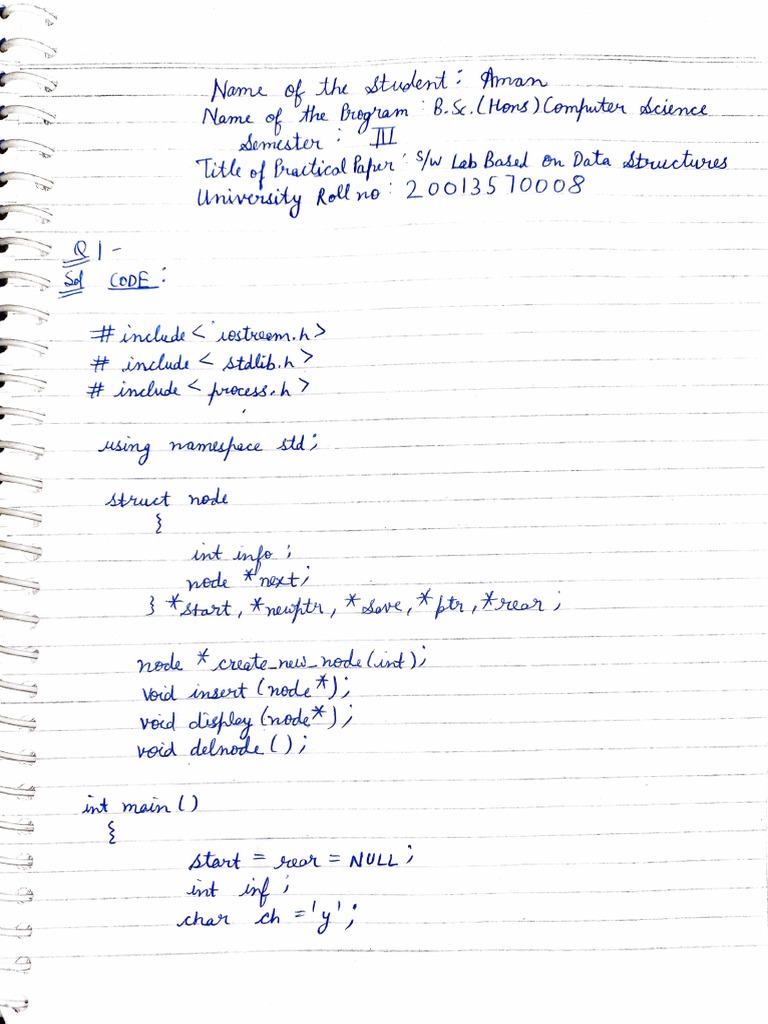 Name of the Student : Aman
Name of the Program : B.Sc.(Hons) Computer Science
Semester : III
Title of Practical Paper : S/W Lab Based on Data Structures
University Roll no : 20013570008
Q1-
Sol CODE :
# include < iostream.h>
# include < stdlib.h >
# include < process.h >
using namespace std ;
struct node
{
int info ;
node *next ;
} *start, *newptr, *save, *ptr, *rear ;
node * create_new_node(int) ;
void insert (node*) ;
void display (node*) ;
void delnode () ;
int main ()
{
start = rear = NULL ;
int inf ;
char ch = 'y' ;